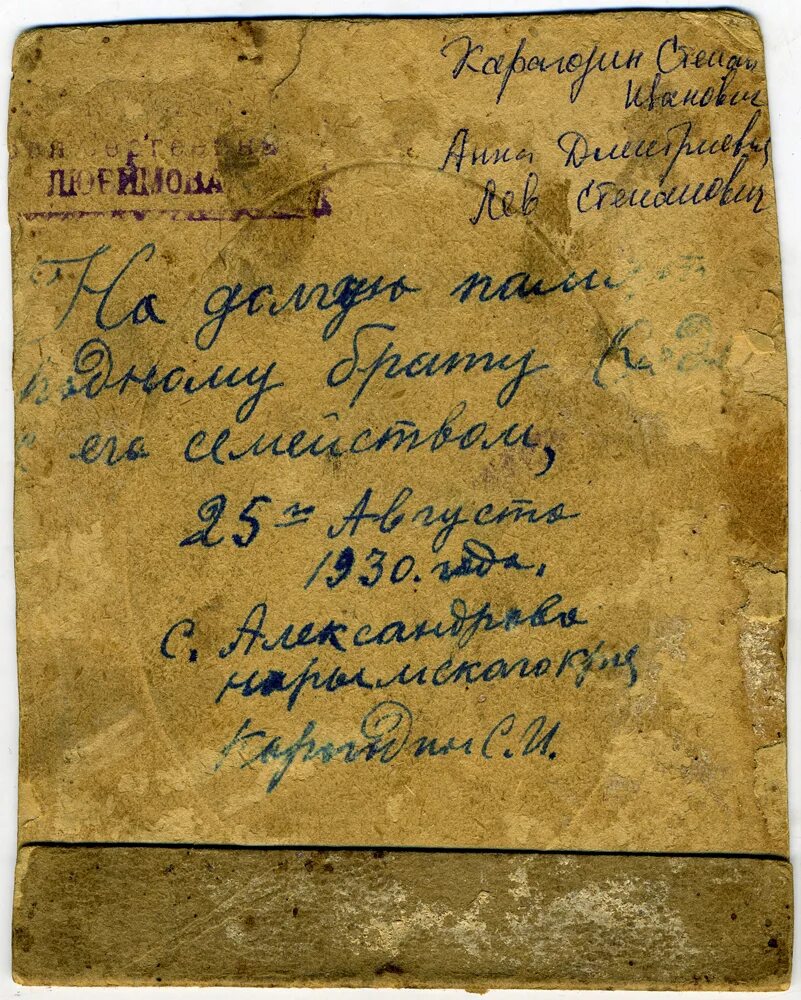 Карагодин Степан
Иванович
Анна Дмитриевна
Лев Степанович
ЛЮБИМОВА
На долгую память
Родному брату
с его семейством,
25го Августа
1930. года.
с. Александрово
нарымскаго края
Карагодин С.И.